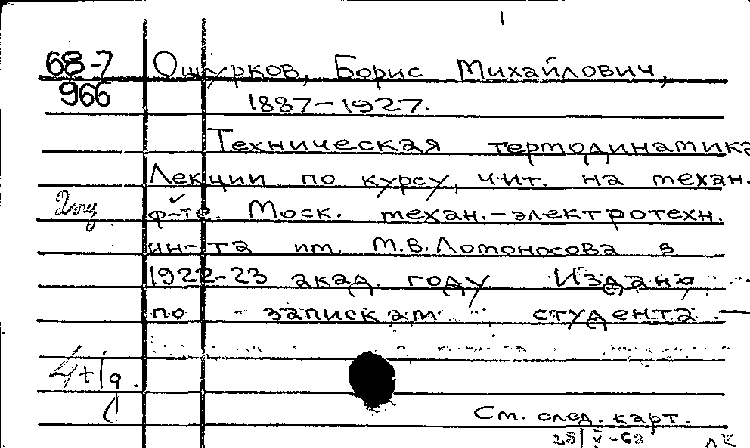 68-7 Ошурков, Борис Михайлович,
966 1887-1927.
Техническая термодинамика
Лекции по курсу, чит. на механ.
ф-те. Моск. механ.-электротехн.
ин-та им. М.В.Ломоносова в
1922-23 акад. году Издано
по записками студента —
См. след. карт.